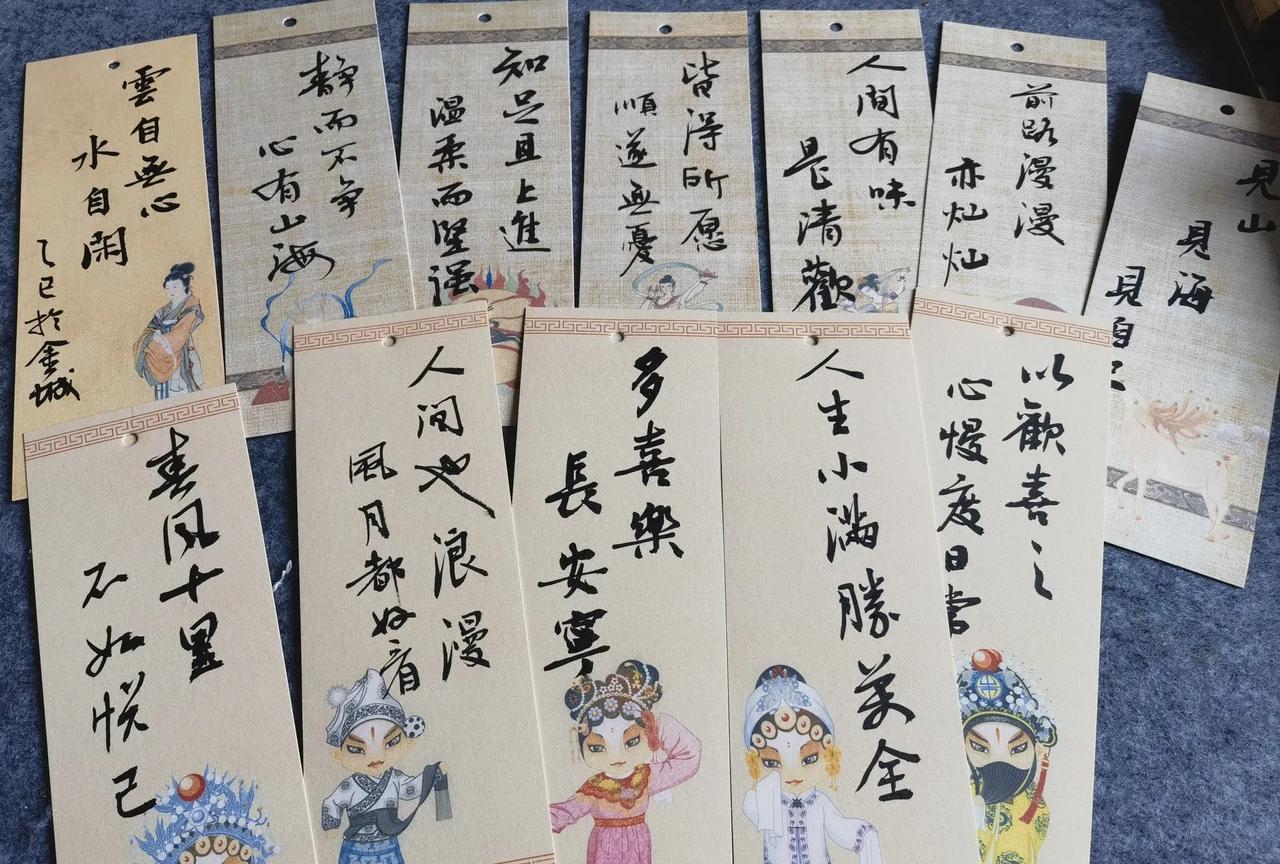 雲自無心
水自閑
乙巳於金城
静而不争
心有山海
知足且上進
温柔而堅强
皆得所愿
順遂無憂
人間有味
是清歡
前路漫漫
亦灿灿
見山
見海
見自己
春风十里
不如悦己
人间也浪漫
風月都好看
多喜樂
長安寧
人生小滿勝萬全
以歡喜之
心慢度日常